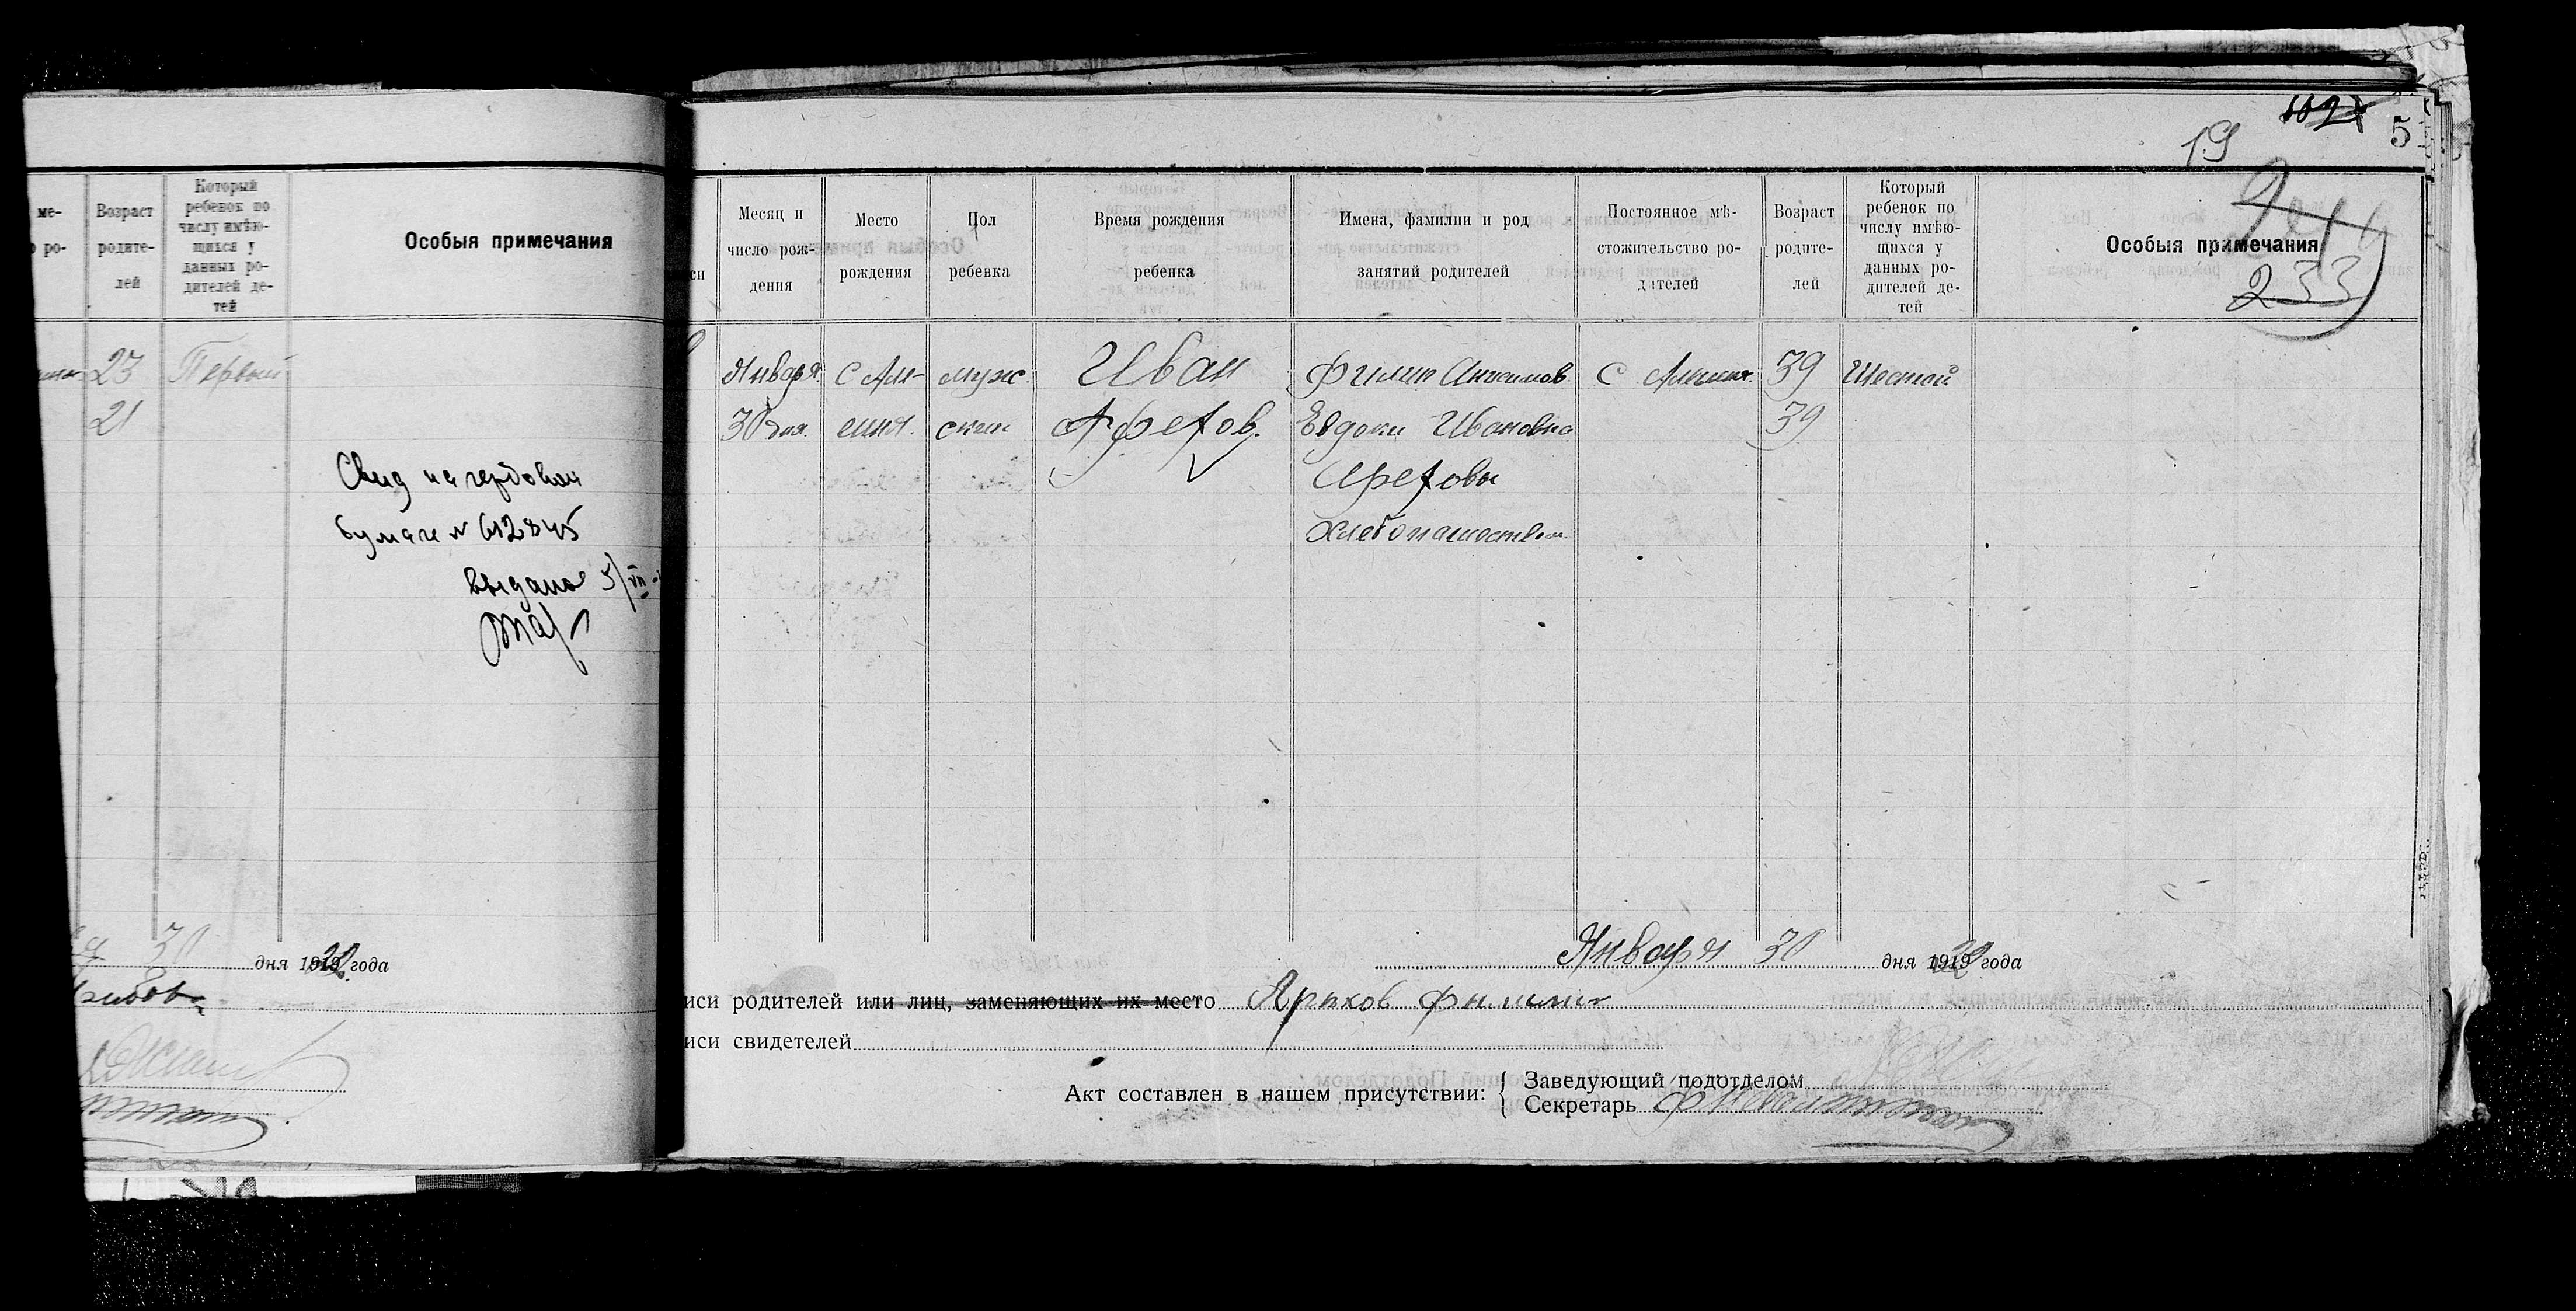 ме-
ро-
Возраст
родите-
лей
Который
ребенок по
числу имѣю-
щихся у
данных ро-
дителей де-
тей
Особыя примечания
23
Первый
21
Свид на гербовой
бумаге № 612845
выдано 5/VII
30
дня 1919 года
19
5
233
Месяц и
число рож-
дения
Место
рождения
Пол
ребенка
Время рождения
ребенка
Имена, фамилии и род
занятий родителей
Постоянное мѣ-
стожительство ро-
дителей
Возраст
родите-
лей
Который
ребенок по
числу имѣю-
щихся у
данных ро-
дителей де-
тей
Особыя примечания
Января
30 дня.
с Ал-
ешня.
муж
ской
Иван
Арефов.
Филип Анисимов
Евдоки Ивановна
Арефовы
хлебопашеством
с Алешня
39
39
Шестой
Января 30 дня 1919 года
иси родителей или лиц, заменяющих их место Арехов Филипп
иси свидетелей
Акт составлен в нашем присутствии:
Заведующий подотделом
Секретарь